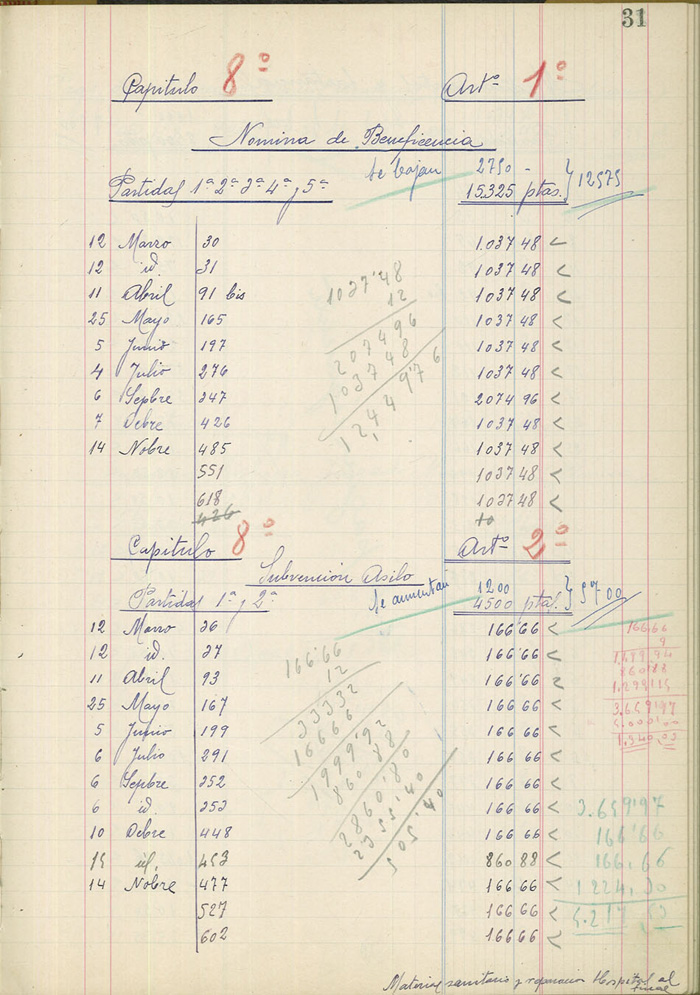 31
Capitulo 8º Artº 1º
Nomina de Beneficencia
se bajan 2750 -
Partidas 1ª 2ª 3ª 4ª y 5ª 15.325 ptas. } 12575
12 Marzo 30 1.037 48 <
12 id. 31 1.037 48 <
11 Abril 91 bis 1037 48 <
25 Mayo 165 1037 48 <
5 Junio 197 1037 48 <
4 Julio 276 1037 48 <
6 Sepbre 347 2074 96 <
7 Octbre 426 1037 48 <
14 Nobre 485 1037 48 <
551 1037 48 <
618 1037 48 <
426 10
1037'48
12
207496
103748
12,44976
Capitulo 8º Artº 2º
Subvención Asilo
se aumentan 1200
Partidas 1ª y 2ª 4500 ptas. } 5700
12 Marzo 36 166'66 <
12 id. 37 166'66 <
11 Abril 93 166'66 <
25 Mayo 167 166 66 <
5 Junio 199 166 66 <
6 Julio 291 166 66 <
6 Sepbre 352 166 66 <
6 id. 353 166 66 <
10 Octbre 448 166 66 <
15 id. 453 860 88 <
14 Nobre 477 166 66 <
527 166 66 <
602 166 66 <
166'66
12
33332
16666
1999'92
860 88
2860'80
166,66
9
3.659'97
3.659'97
166'66
166,66
1224,30
Material sanitario y reparacion Hospital al final